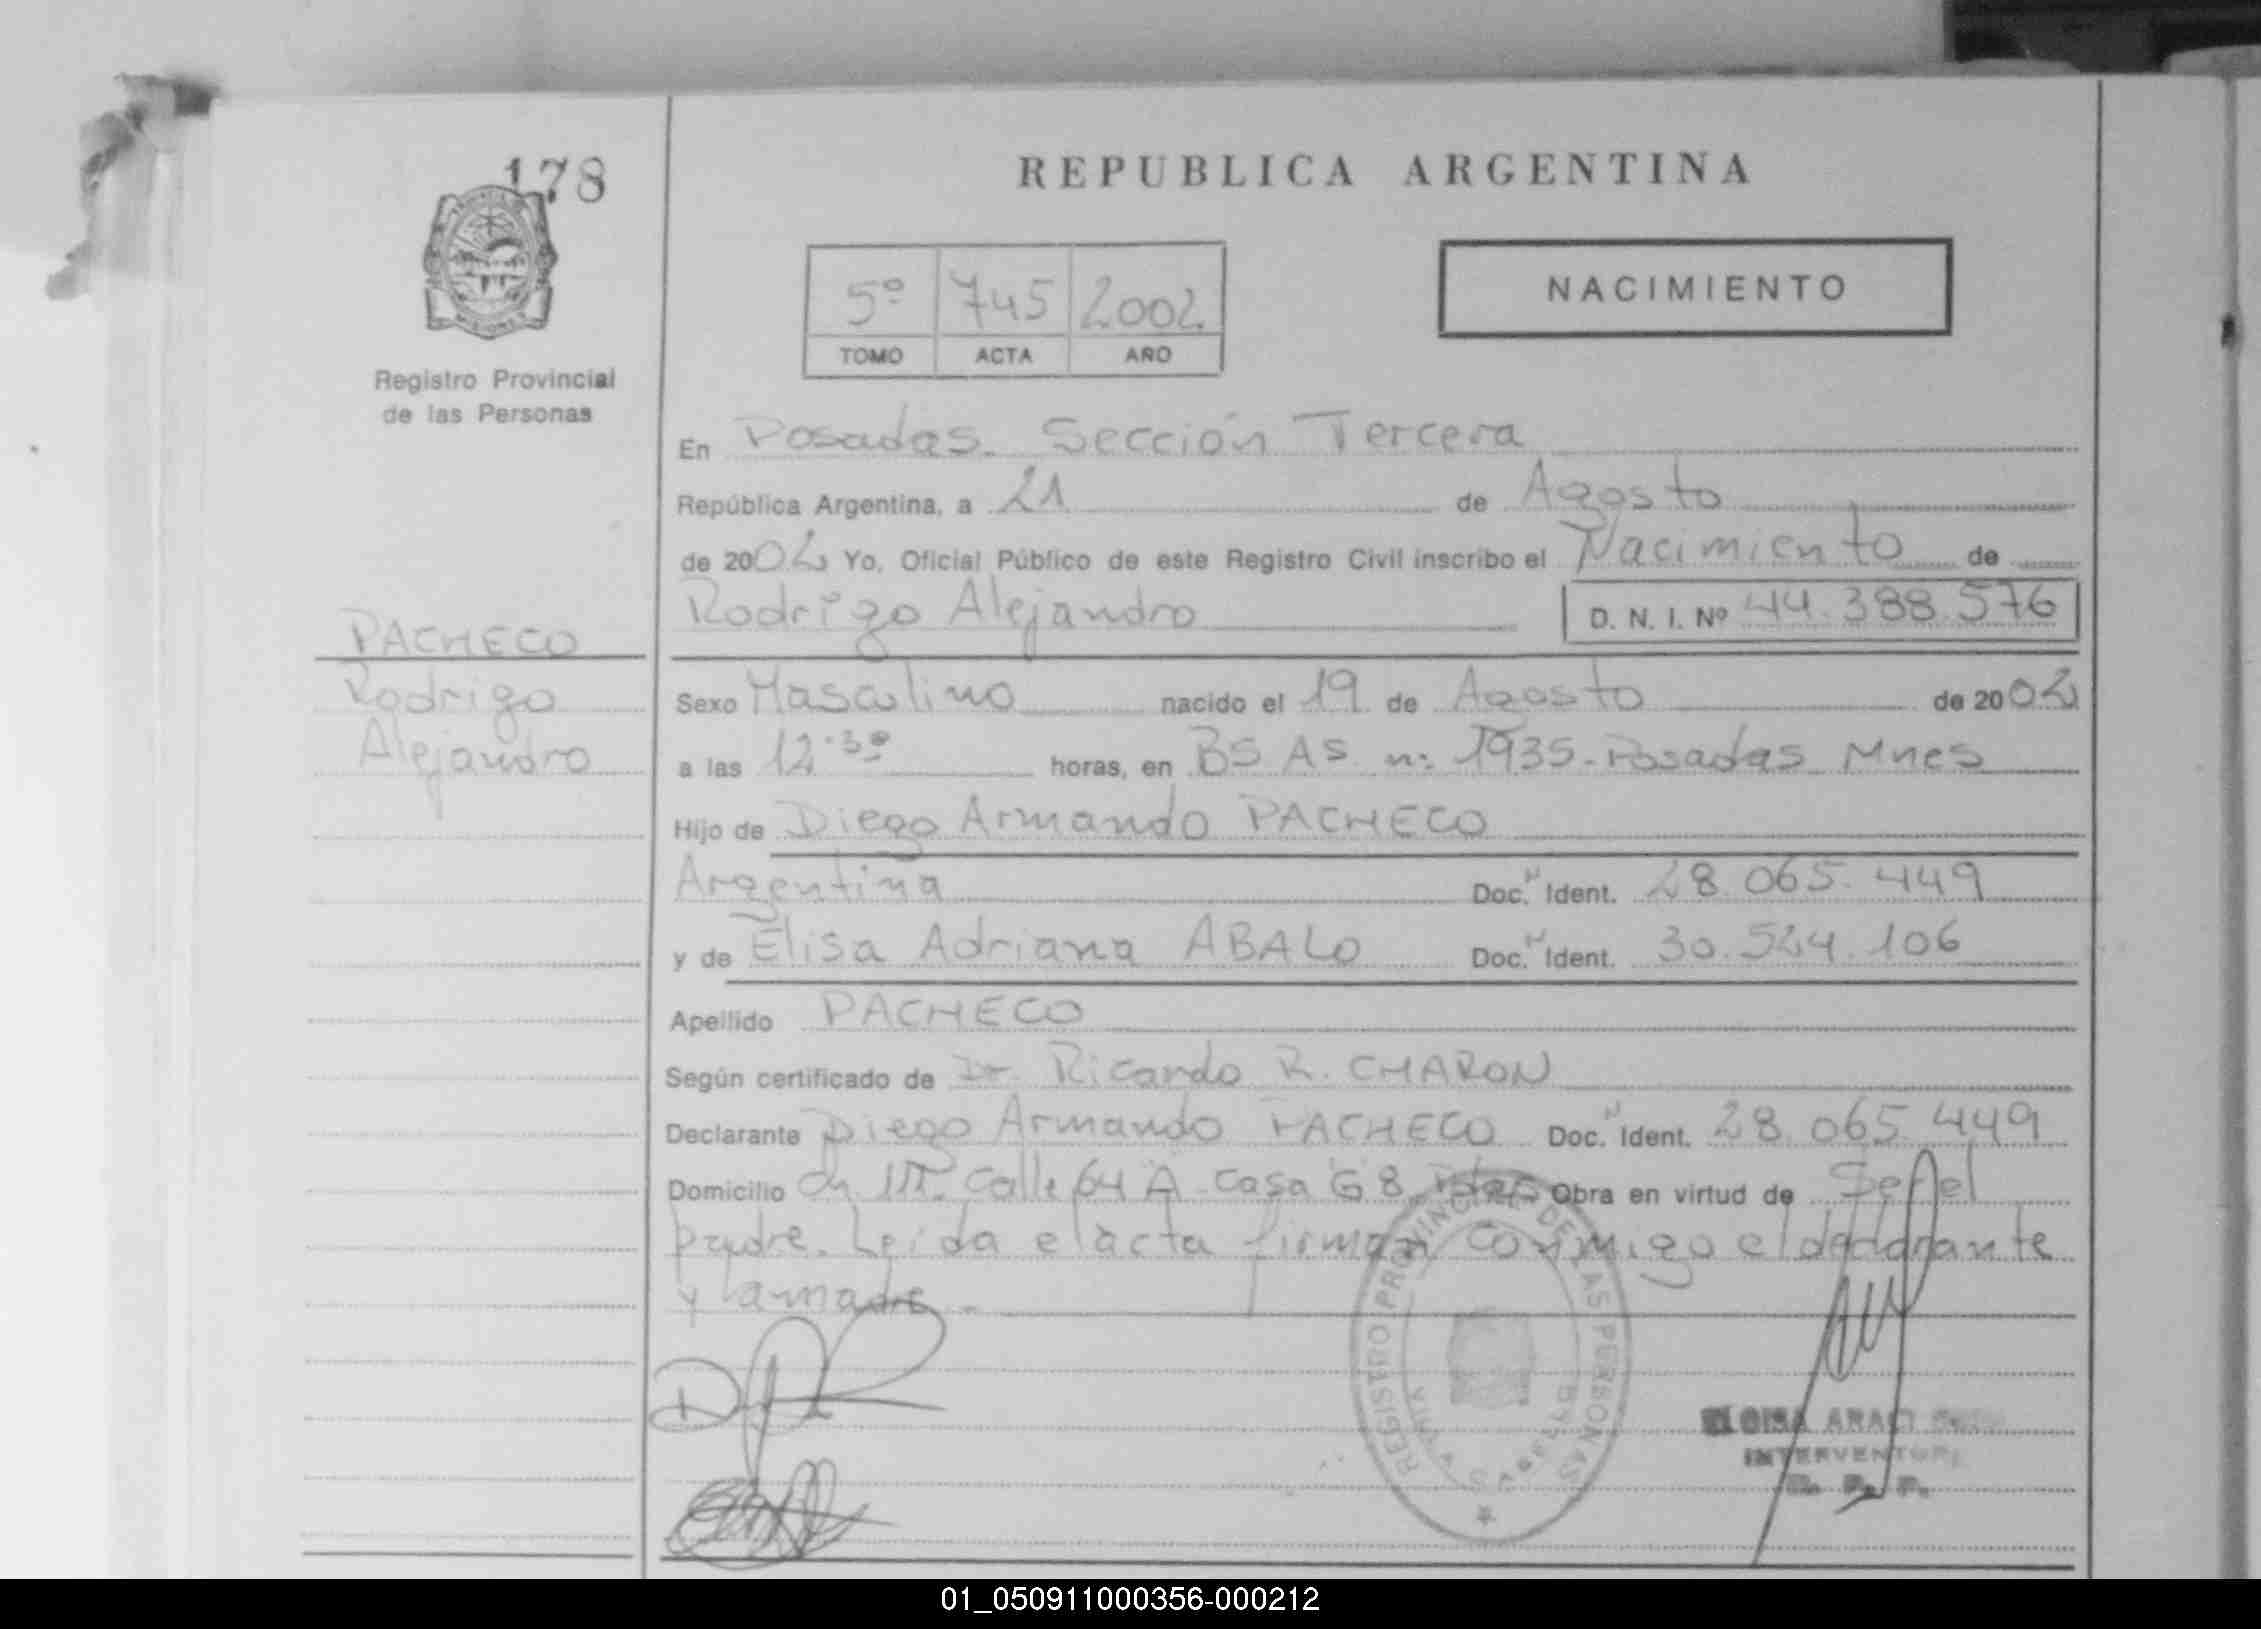 178
REPUBLICA ARGENTINA
NACIMIENTO
5º 745 2002
TOMO ACTA AÑO
Registro Provincial
de las Personas
En Posadas. Sección Tercera
República Argentina, a 21 de Agosto
de 2002 Yo, Oficial Público de este Registro Civil inscribo el Nacimiento de
Rodrigo Alejandro D. N. I. Nº 44.388.576
PACHECO
Rodrigo
Alejandro
Sexo Masculino nacido el 19 de Agosto de 2002
a las 12.30 horas, en BS AS nº 1935. Posadas Mnes
Hijo de Diego Armando PACHECO
Argentina Doc. N Ident. 28.065.449
y de Elisa Adriana ABALO Doc. N Ident. 30.524.106
Apellido PACHECO
Según certificado de Dr. Ricardo R. CHARON
Declarante Diego Armando PACHECO Doc. N Ident. 28.065.449
Domicilio Ch Calle 64 A Casa G 8 Pdas Obra en virtud de Ser el
padre. Leida el acta firman conmigo el declarante
y la madre.
REGISTRO PROVINCIAL DE LAS PERSONAS
ELOISA ARACI
INTERVENTORA
R. P. P.
01_050911000356-000212